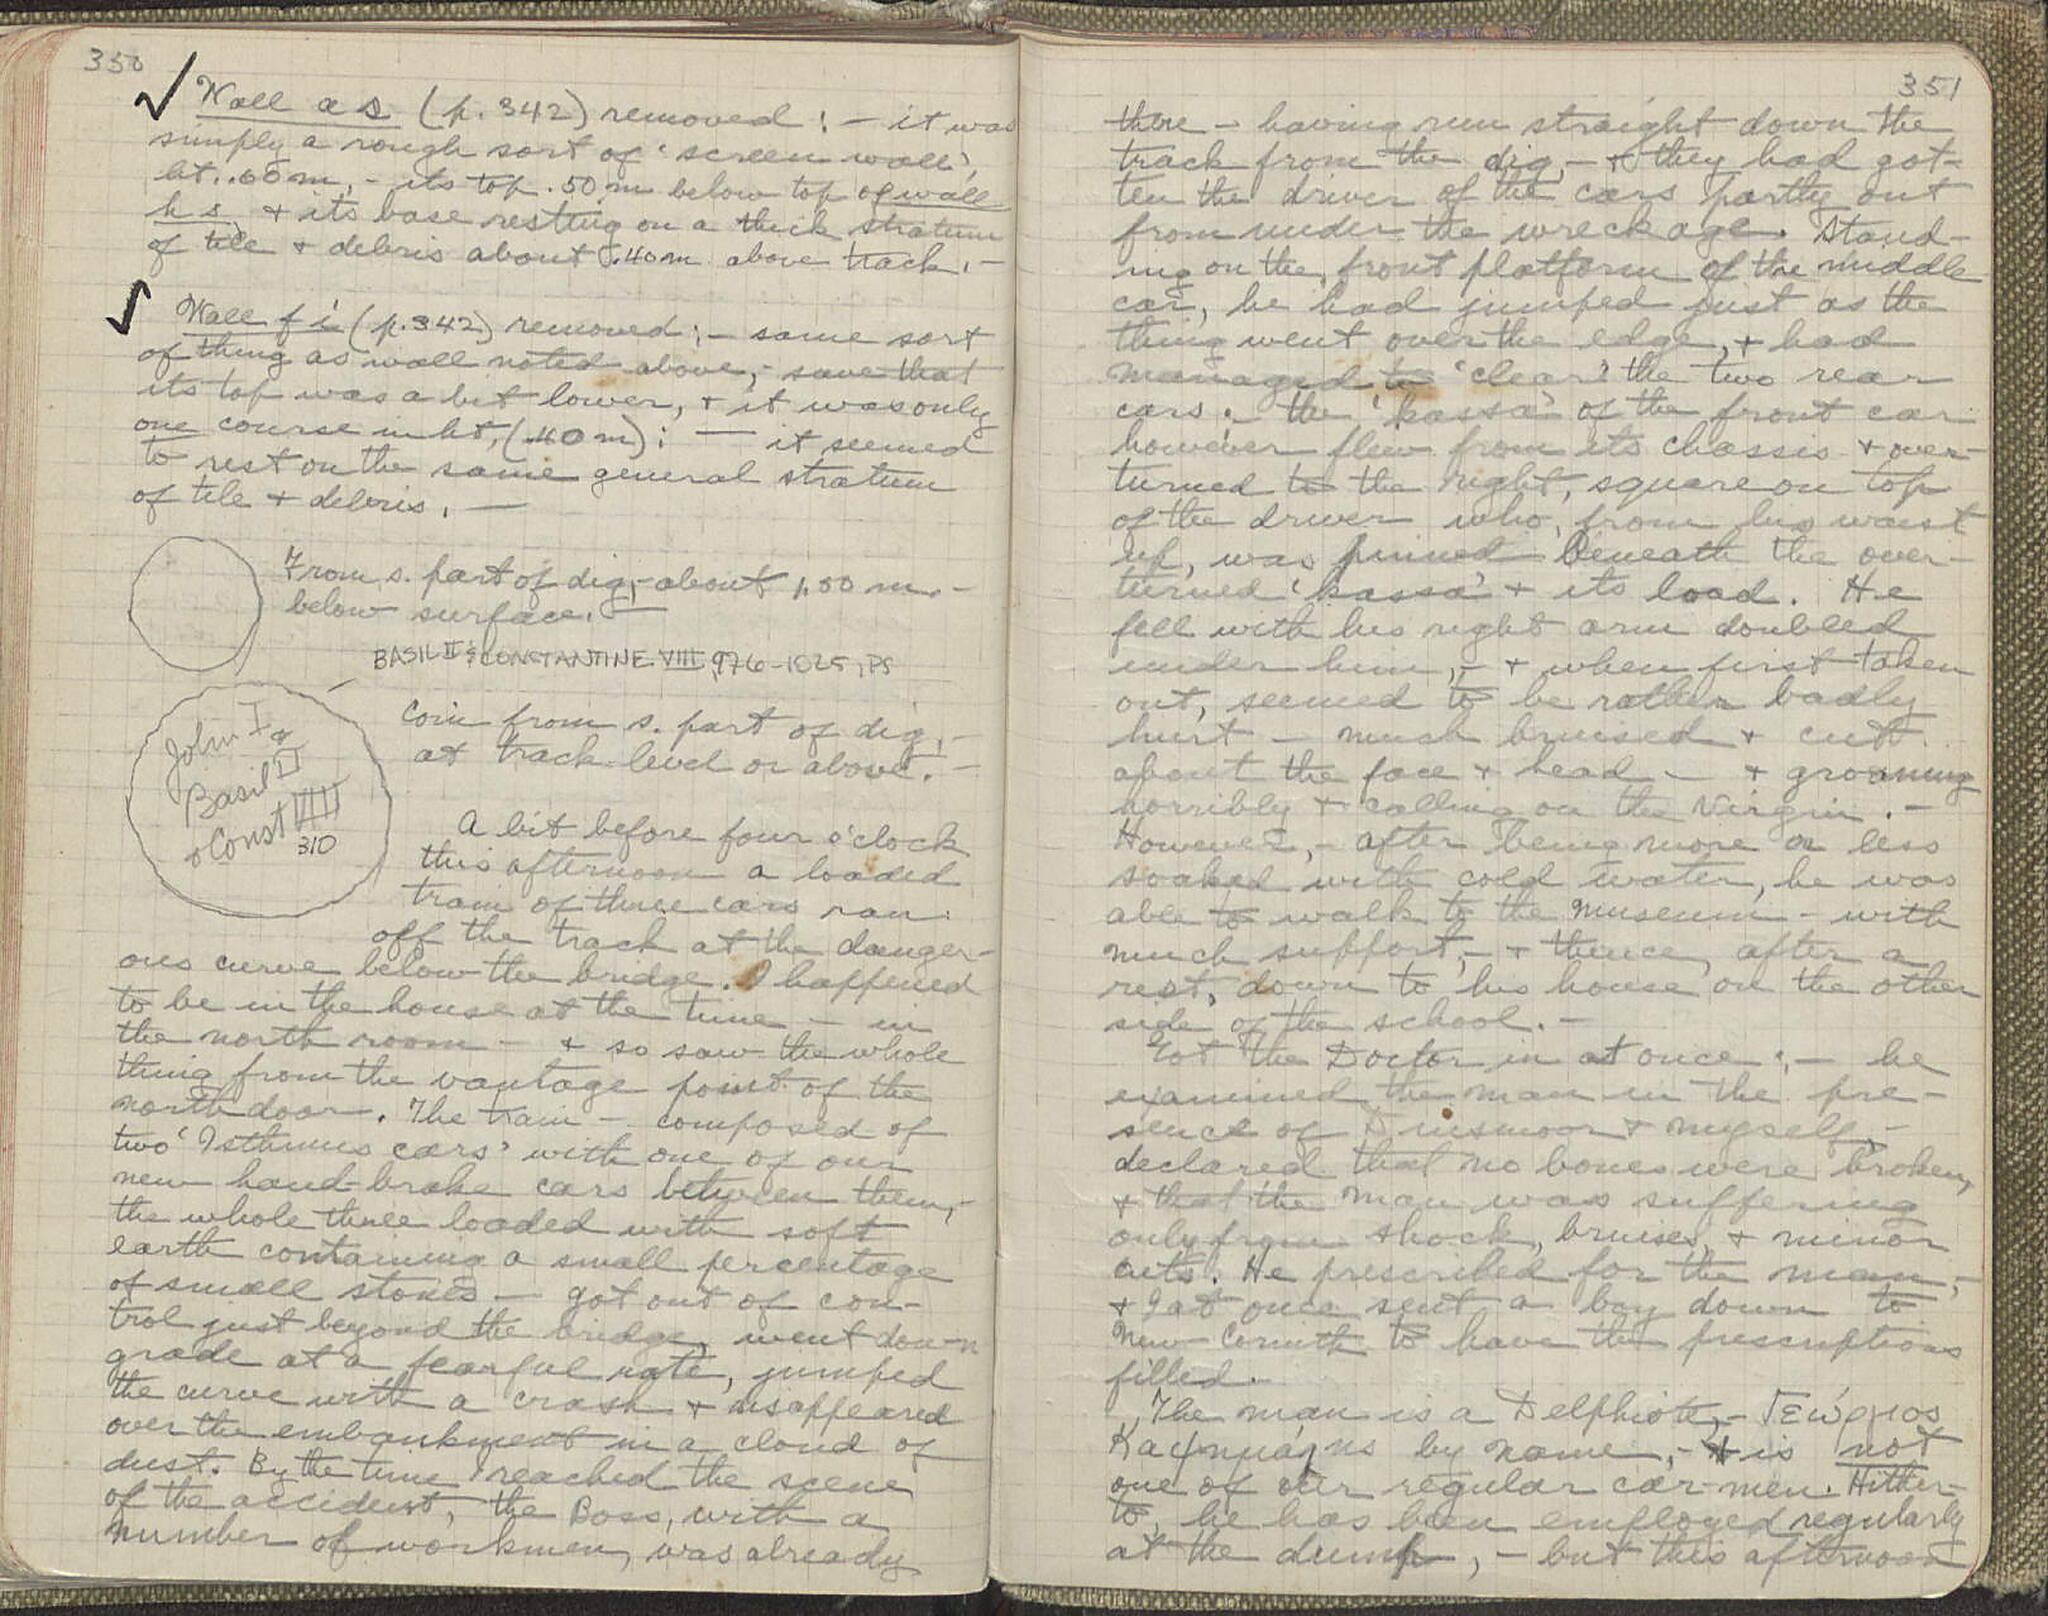 350
Wall as (p. 342) removed : — it was
simply a rough sort of 'screen wall',
ht. .60 m, - its top .50 m below top of wall
hs, + its base resting on a thick stratum
of tile + debris about .40 m above track. —
Wall fi (p. 342) removed : — same sort
of thing as wall noted above, - save that
its top was a bit lower, + it was only
one course in ht, (.40 m) : — it seemed
to rest on the same general stratum
of tile + debris. —
From s. part of dig, - about 1.00 m. -
below surface. —
BASIL II & CONSTANTINE VIII, 976-1025, PS
John I or
Basil II
+ Const VIII
310
Coin from s. part of dig, -
at track-level or above. —
A bit before four o'clock
this afternoon a loaded
train of three cars ran
off the track at the danger-
ous curve below the bridge. I happened
to be in the house at the time — in
the north room — + so saw the whole
thing from the vantage point of the
north door. The train — composed of
two 'Isthmus cars' with one of our
new hand-brake cars between them, -
the whole three loaded with soft
earth containing a small percentage
of small stones — got out of con-
trol just beyond the bridge, went down
grade at a fearful rate, jumped
the curve with a crash + disappeared
over the embankment in a cloud of
dust. By the time I reached the scene
of the accident, the Boss, with a
number of workmen, was already
351
there — having run straight down the
track from the dig, - + they had got-
ten the driver of the cars partly out
from under the wreckage. Stand-
ing on the front platform of the middle
car, he had jumped just as the
thing went over the edge, + had
managed to 'clear' the two rear
cars; the 'kassa' of the front car
however flew from its chassis + over-
turned to the right, square on top
of the driver who, from his waist
up, was pinned beneath the over-
turned 'kassa' + its load. He
fell with his right arm doubled
under him, - + when first taken
out, seemed to be rather badly
hurt — much bruised + cut
about the face + head — + groaning
horribly + calling on the Virgin. —
However, - after being more or less
soaked with cold water, he was
able to walk to the museum - with
much support, - + thence, after a
rest, down to his house on the other
side of the school. —
Got the Doctor in at once : — he
examined the man in the pre-
sence of Dinsmoor + myself, -
declared that no bones were broken,
+ that the man was suffering
only from shock, bruises, + minor
cuts. He prescribed for the man, -
+ I at once sent a boy down to
New Corinth to have the prescriptions
filled. -
The man is a Delphiote, - Γεώργιος
by name, - + is not
one of our regular car-men. Hither-
to, he has been employed regularly
at the dump, - but this afternoon